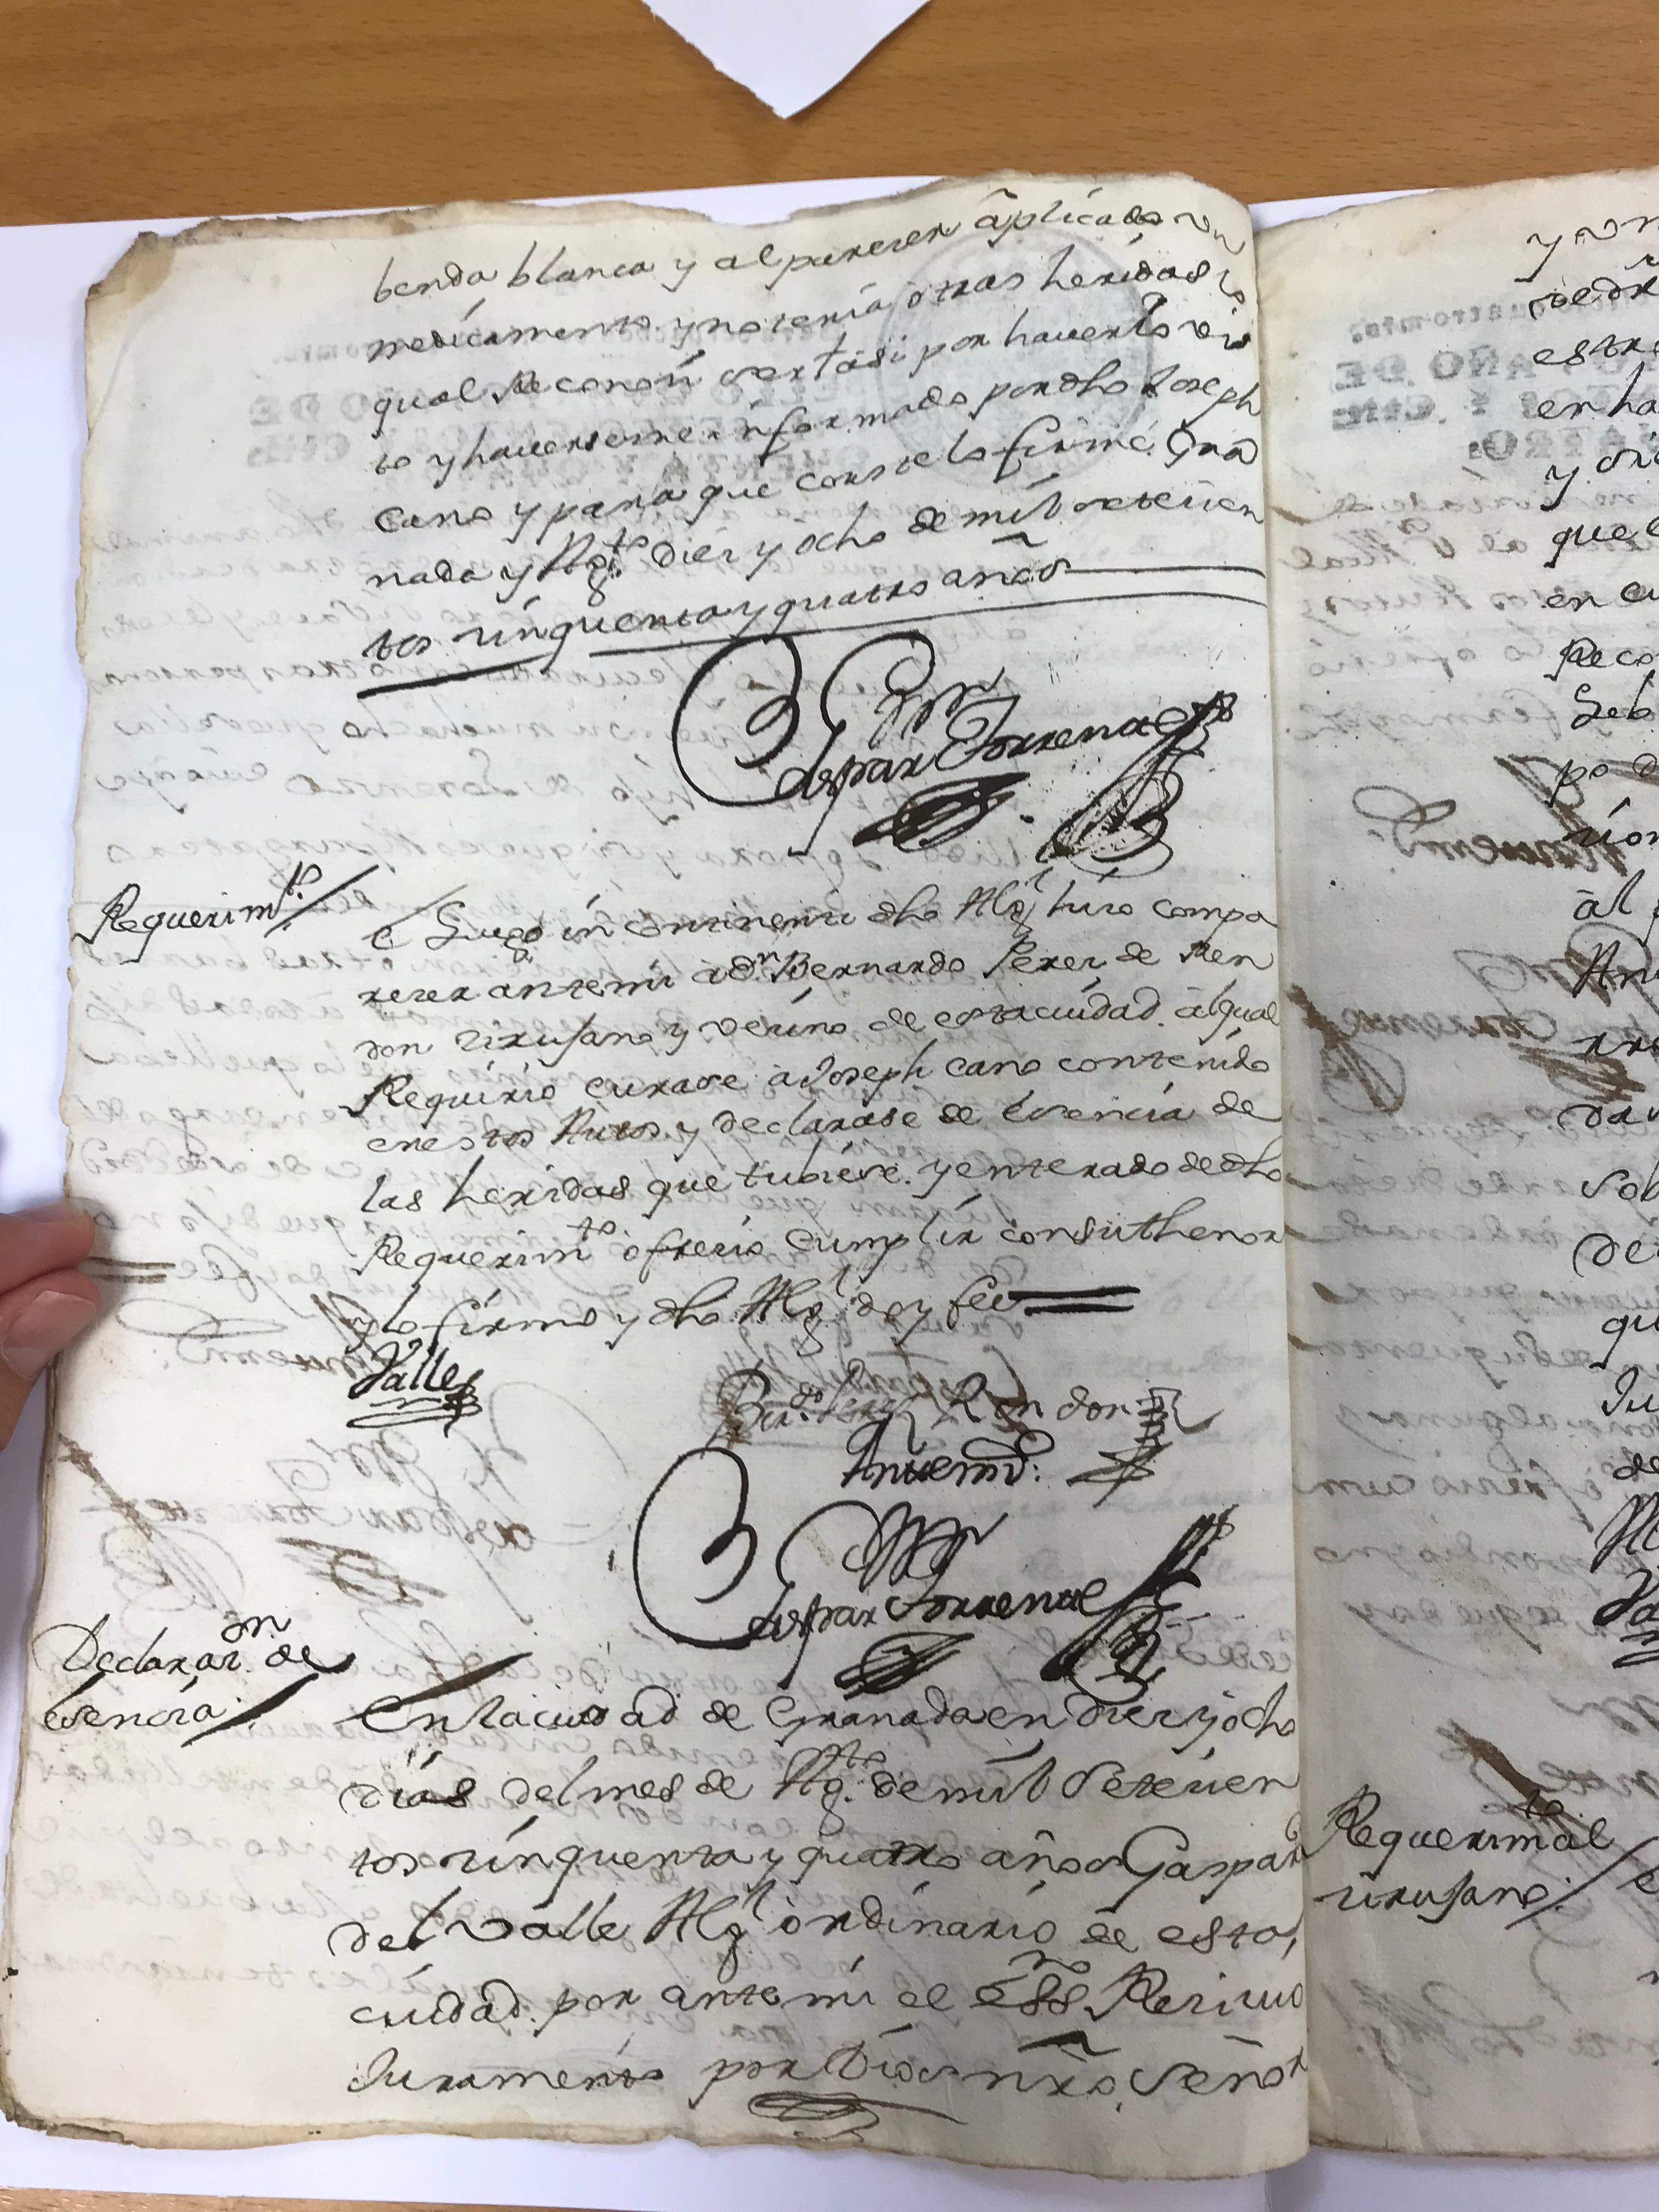 benda blanca y al parecer aplicado un
medicamento y no tenia otras heridas lo
qual Reconoci ser asi por haverlo vis
to y haverseme informado por dho Joseph
Cano y para que conste lo firmé Gra
nada y Agto. diez y ocho de mil setecien
tos cinquenta y quatro años
Gaspar Torrenae
Requerim.to
E Luego in continenti dho Alg.l hizo compa
rezer ante mi a Dn Bernardo Perez de Ren
don zirujano y vezino de esta ciudad. al qual
Requirio curase a Joseph Cano contenido
en estos Autos y declarase de esencia de
las heridas que tubiese. y enterado de dho
Requerim.to ofrecio cumplir con su thenor
y lo firmo y dho Alg.l doy fee
Valle
Ber.do Perez Rendon
Ante mi:
Gaspar Torrenae
Declaraz.on de
esencia
En la ciudad de Granada en diez y ocho
dias del mes de Ag.to de mil setecien
tos cinquenta y quatro años Gaspar
del Valle Alg.l ordinario de esta
ciudad. por ante mi el essno Reciuio
Juramento por Dios nro Señor
y un
estre
en ha
que l
en cu
Reco
Seb
po d
cion
al
sob
qu
Ju
de
Requerim.to al
zirujano